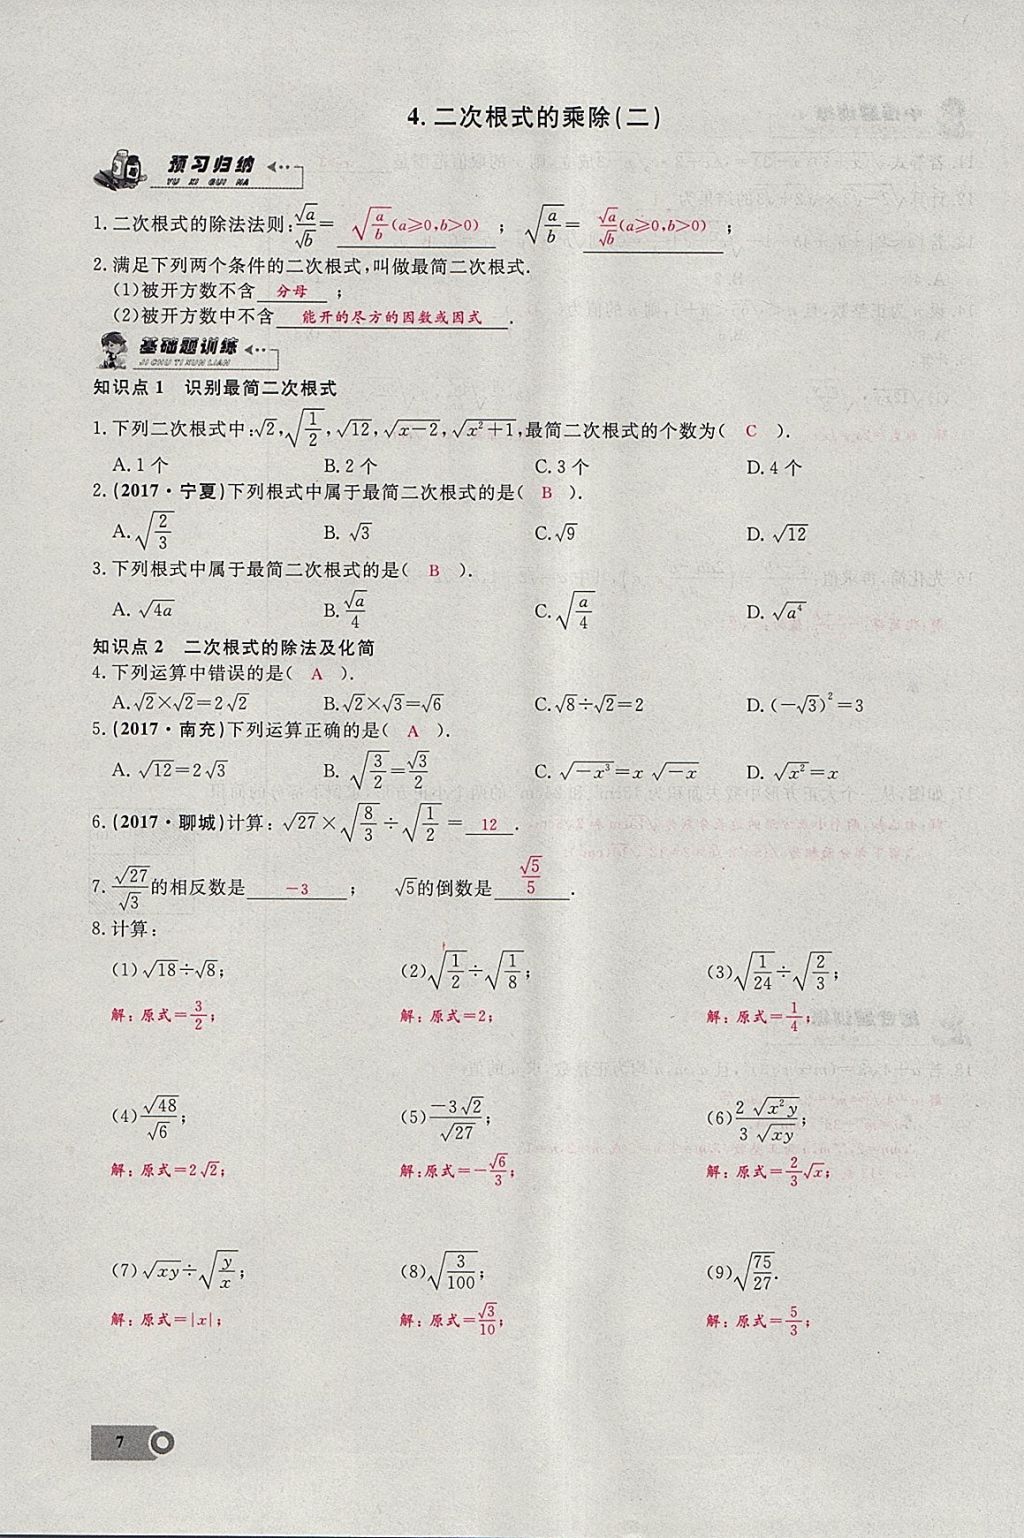 4. 二次根式的乘除(二)
预习归纳
YU XI GUI NA
1. 二次根式的除法法则: √a/√b = √(a/b) (a≥0,b>0) ; √(a/b) = √a/√b (a≥0,b>0) ;
2. 满足下列两个条件的二次根式,叫做最简二次根式.
(1)被开方数不含 分母 ;
(2)被开方数中不含 能开的尽方的因数或因式 .
基础题训练
JI CHU TI XUN LIAN
知识点 1 识别最简二次根式
1. 下列二次根式中: √2, √(1/2), √12, √(x-2), √(x²+1), 最简二次根式的个数为( C ).
A. 1 个 B. 2 个 C. 3 个 D. 4 个
2. (2017·宁夏)下列根式中属于最简二次根式的是( B ).
A. √(2/3) B. √3 C. √9 D. √12
3. 下列根式中属于最简二次根式的是( B ).
A. √(4a) B. √a/4 C. √(a/4) D. √(a⁴)
知识点 2 二次根式的除法及化简
4. 下列运算中错误的是( A ).
A. √2×√2=2√2 B. √2×√3=√6 C. √8÷√2=2 D. (-√3)²=3
5. (2017·南充)下列运算正确的是( A ).
A. √12=2√3 B. √(3/2)=√3/2 C. √(-x³)=x√(-x) D. √(x²)=x
6. (2017·聊城)计算: √27×√(8/3)÷√(1/2)= 12 .
7. √27/√3 的相反数是 -3 ; √5的倒数是 √5/5 .
8. 计算:
(1) √18÷√8; (2) √(1/2)÷√(1/8); (3) √(1/24)÷√(2/3);
解: 原式=3/2; 解: 原式=2; 解: 原式=1/4;
(4) √48/√6; (5) -3√2/√27; (6) 2√(x²y)/3√(xy);
解: 原式=2√2; 解: 原式=-√6/3; 解: 原式=2/3√x;
(7) √(xy)÷√(y/x); (8) √(3/100); (9) √(75/27).
解: 原式=|x|; 解: 原式=√3/10; 解: 原式=5/3;
7